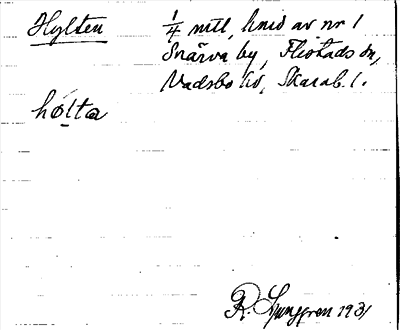 Hylten 1/4 mtl, hmd av nr 1
Snärva by, Flistads sn,
Vadsbo hd, Skarab. l.
hölta
R. Ljunggren 1931